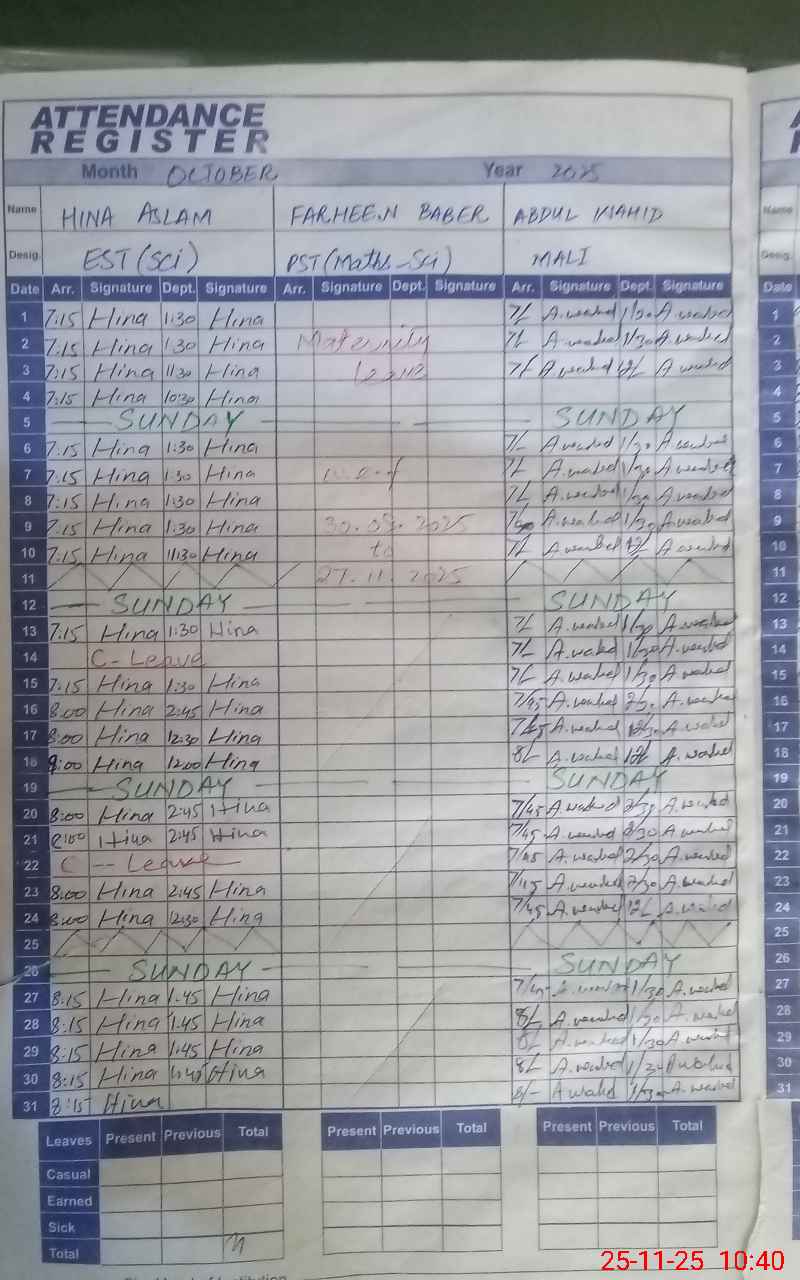 ATTENDANCE
REGISTER
Month OCTOBER Year 2025
Name HINA ASLAM FARHEEN BABER ABDUL WAHID Name
Desig. EST (Sci) PST (Maths-Sci) MALI Desig.
Date Arr. Signature Dept. Signature Arr. Signature Dept. Signature Arr. Signature Dept. Signature Date
1 7:15 Hina 1:30 Hina 7/- A.wahed 1/30 A.wahed 1
2 7:15 Hina 1:30 Hina Maternity 7/- A.wahed 1/30 A.wahed 2
3 7:15 Hina 11:30 Hina Leave 7/- A.wahed 12/- A.wahed 3
4 7:15 Hina 10:30 Hina 4
5 SUNDAY SUNDAY 5
6 7:15 Hina 1:30 Hina 7/- A.wahed 1/30 A.wahed 6
7 7:15 Hina 1:30 Hina w.e.f 7/- A.wahed 1/30 A.wahed 7
8 7:15 Hina 1:30 Hina 7/- A.wahed 1/30 A.wahed 8
9 7:15 Hina 1:30 Hina 30.08.2025 A.wahed 1/30 A.wahed 9
10 7:15 Hina 11:30 Hina to 7/- A.wahed 12/- A.wahed 10
11 27.11.2025 11
12 SUNDAY SUNDAY 12
13 7:15 Hina 1:30 Hina 7/- A.wahed 1/30 A.wahed 13
14 C-Leave 7/- A.wahed 1/30 A.wahed 14
15 7:15 Hina 1:30 Hina 7/- A.wahed 1/30 A.wahed 15
16 8:00 Hina 2:45 Hina 7/45 A.wahed 2/30 A.wahed 16
17 8:00 Hina 12:30 Hina 7/45 A.wahed 12/30 A.wahed 17
18 8:00 Hina 12:00 Hina 8/- A.wahed 12/- A.wahed 18
19 SUNDAY SUNDAY 19
20 8:00 Hina 2:45 Hina 7/45 A.wahed 2/30 A.wahed 20
21 8:00 Hina 2:45 Hina 7/45 A.wahed 2/30 A.wahed 21
22 C-Leave 7/45 A.wahed 2/30 A.wahed 22
23 8:00 Hina 2:45 Hina 7/45 A.wahed 2/30 A.wahed 23
24 8:00 Hina 12:30 Hina 7/45 A.wahed 12/- A.wahed 24
25 25
26 SUNDAY SUNDAY 26
27 8:15 Hina 1:45 Hina 7/45 A.wahed 1/30 A.wahed 27
28 8:15 Hina 1:45 Hina 8/- A.wahed 1/30 A.wahed 28
29 8:15 Hina 1:45 Hina 8/- A.wahed 1/30 A.wahed 29
30 8:15 Hina 1:45 Hina 8/- A.wahed 1/30 A.wahed 30
31 8:15 Hina 8/- A.wahed 1/30 A.wahed 31
Leaves Present Previous Total Present Previous Total Present Previous Total
Casual
Earned
Sick
Total
25-11-25 10:40